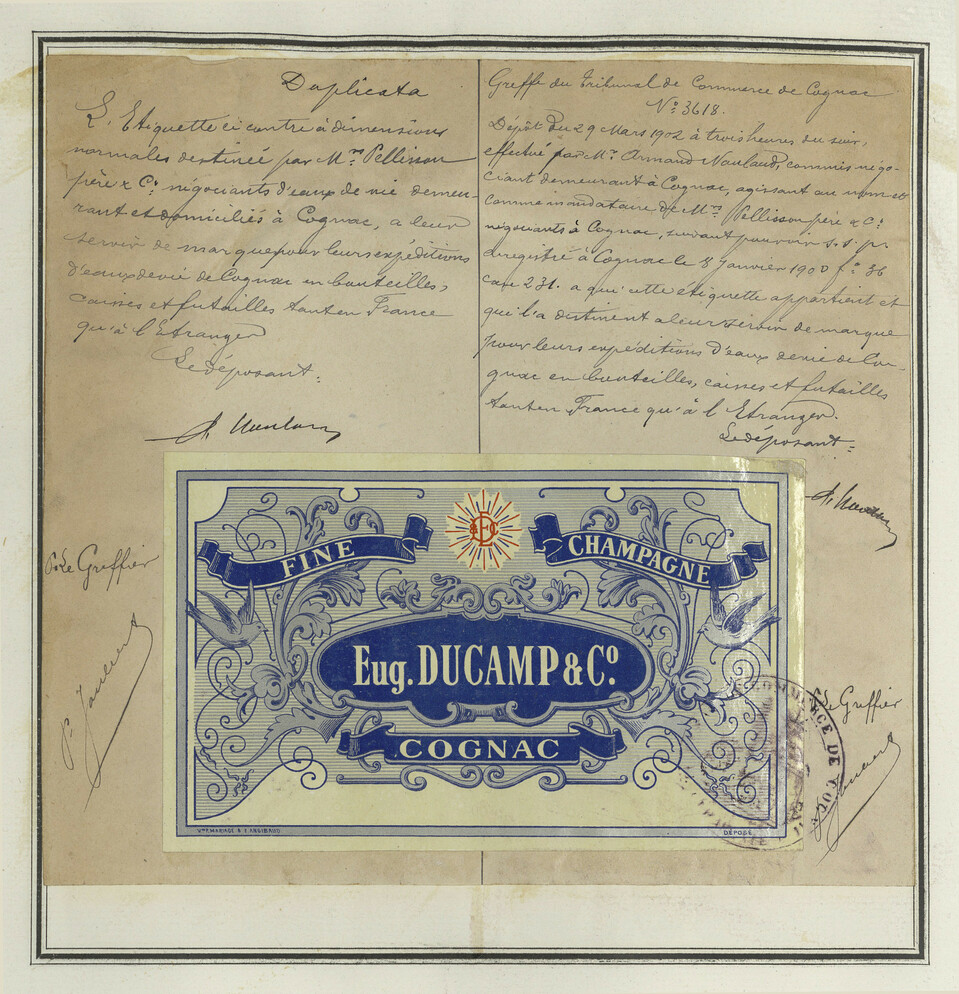 Duplicata
L'Etiquette ci contre à dimensions
normales destinée par Mrs Pellisson
père & Cie négociants d'eaux de vie demeu-
rant et domiciliés à Cognac, a leur
servir de marque pour leurs expéditions
d'eaux de vie de Cognac en bouteilles,
caisses et futailles tant en France
qu'à l'Etranger
Le déposant:
Greffe du Tribunal de Commerce de Cognac
No 3618.
Dépôt du 29 Mars 1902 à trois heures du soir,
effectué par Mr Armand Naulaud, commis négo-
ciant demeurant à Cognac, agissant au nom et
comme mandataire de Mrs Pellisson père & Cie
négociants à Cognac, suivant pouvoir s.s. p.
enregistré à Cognac le 8 Janvier 1900 fo 36
case 231. a qui cette etiquette appartient et
qui l'a destinent a leur servir de marque
pour leurs expéditions d'eaux de vie de Co-
gnac en bouteilles, caisses et futailles
tant en France qu'à l'Etranger.
Le déposant:
Le Greffier
FINE
CHAMPAGNE
Eug. DUCAMP & Co.
COGNAC
Vve MARIAGE & J. ANGIBAUD
DÉPOSÉ
COMMERCE DE COGN
Le Greffier